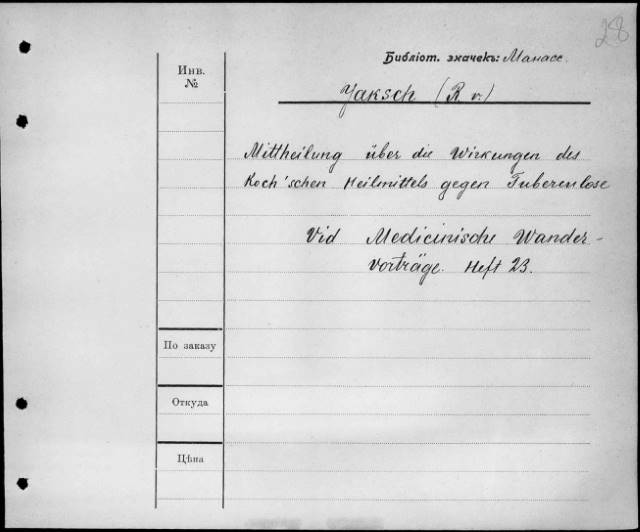 28
Библіот. значекъ: Манасе.
Инв.
№
Jaksch (R v.)
Mittheilung über die Wirkungen des
Koch'schen Heilmittels gegen Tuberculose
Vid Medicinische Wander-
vorträge. Heft 23.
По заказу
Откуда
Цѣна